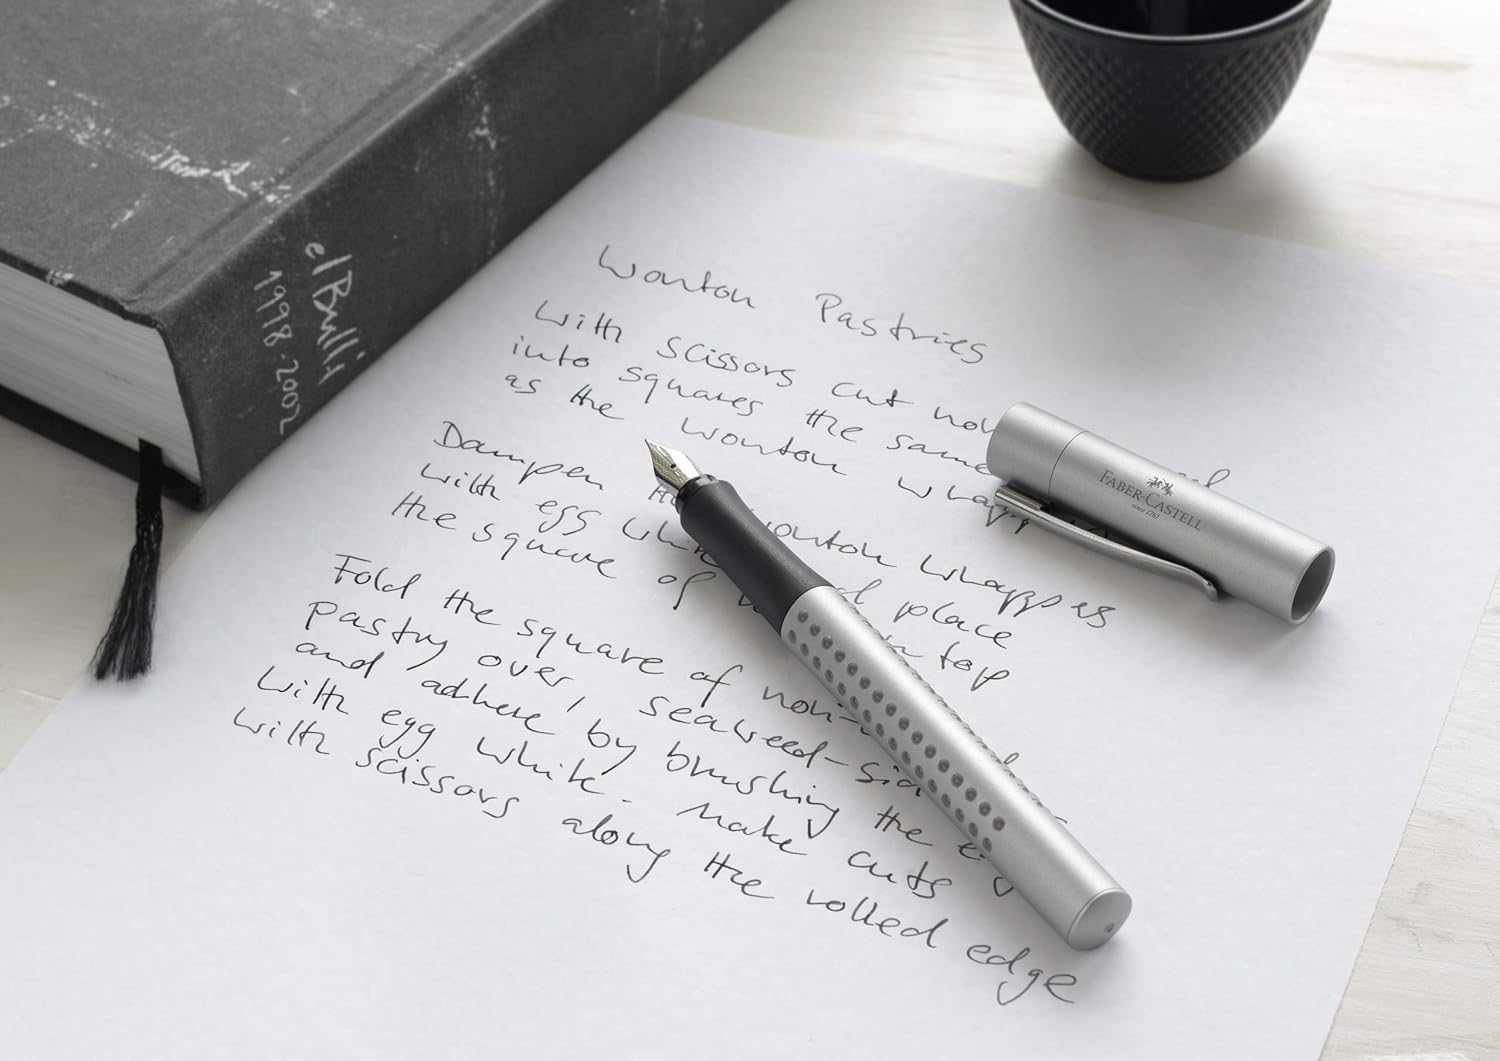 elBulli
1998-2002
Wonton Pastries
With scissors cut
into squares the same
as the wonton
Dampen wonton wrappers
with egg white place
the square of top
Fold the square of non-
pastry over, seaweed-
and adhere by brushing the
with egg white. Make cuts
with scissors along the rolled edge
FABER-CASTELL
since 1761